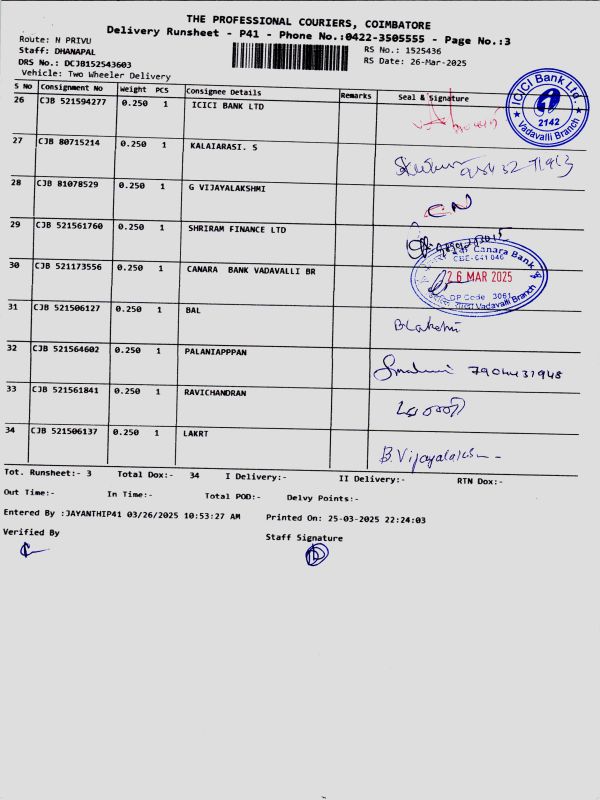 THE PROFESSIONAL COURIERS, COIMBATORE
Delivery Runsheet - P41 - Phone No.:0422-3505555 - Page No.:3
Route: N PRIVU
RS No.: 1525436
Staff: DHANAPAL
RS Date: 26-Mar-2025
DRS No.: DCJB152543603
Vehicle: Two Wheeler Delivery
S No Consignment No Weight PCS Consignee Details Remarks Seal & Signature
26 CJB 521594277 0.250 1 ICICI BANK LTD
ICICI Bank Ltd.
2142
Vadavalli Branch
27 CJB 80715214 0.250 1 KALAIARASI. S
28 CJB 81078529 0.250 1 G VIJAYALAKSHMI
CN
29 CJB 521561760 0.250 1 SHRIRAM FINANCE LTD
30 CJB 521173556 0.250 1 CANARA BANK VADAVALLI BR
Canara Bank
CBE-641 046
26 MAR 2025
DP Code 3061
Vadavalli Branch
31 CJB 521506127 0.250 1 BAL
32 CJB 521564602 0.250 1 PALANIAPPPAN
7904431948
33 CJB 521561841 0.250 1 RAVICHANDRAN
34 CJB 521506137 0.250 1 LAKRT
B. Vijayalakshmi
Tot. Runsheet:- 3 Total Dox:- 34 I Delivery:- II Delivery:- RTN Dox:-
Out Time:- In Time:- Total POD:- Delvy Points:-
Entered By :JAYANTHIP41 03/26/2025 10:53:27 AM Printed On: 25-03-2025 22:24:03
Verified By
Staff Signature